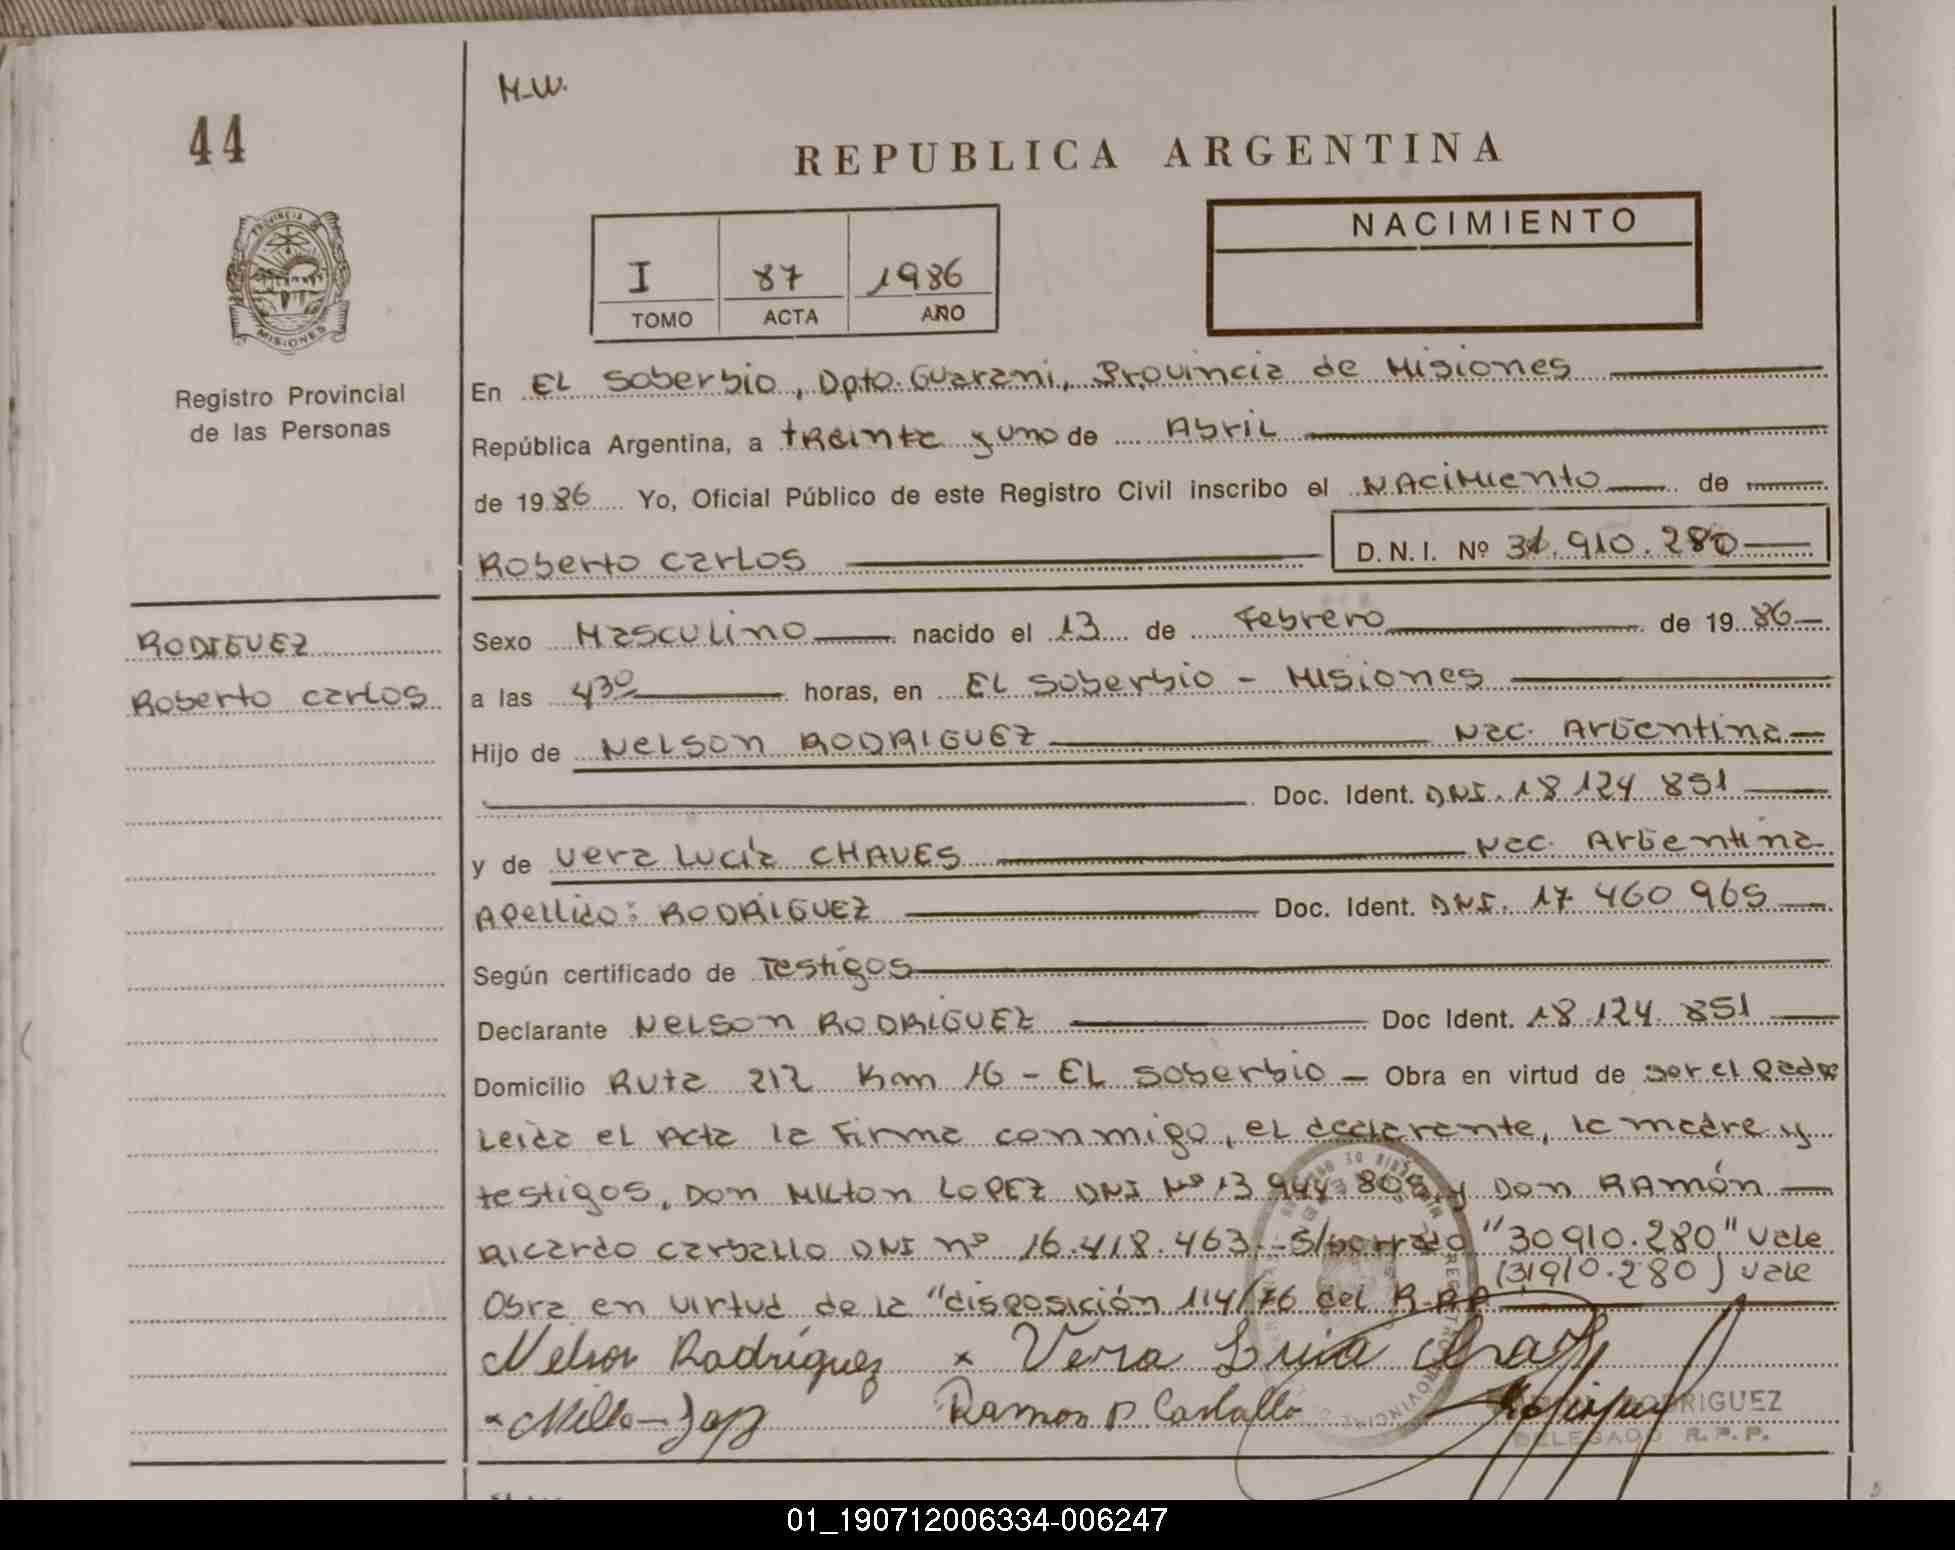 M.W.
44
REPUBLICA ARGENTINA
PROVINCIA DE
MISIONES
NACIMIENTO
I 87 1986
TOMO ACTA AÑO
Registro Provincial
de las Personas
En EL Soberbio, Dpto. Guarani, Provincia de Misiones
República Argentina, a treinta y uno de Abril
de 1986 Yo, Oficial Público de este Registro Civil inscribo el NACIMIENTO de
Roberto Carlos D.N.I. Nº 31.910.280
RODIGUEZ
Roberto Carlos
Sexo Masculino nacido el 13 de Febrero de 1986
a las 430 horas, en EL Soberbio - Misiones
Hijo de Nelson RODRIGUEZ Nac. Argentina
Doc. Ident. DNI. 18 124 851
y de Vera Lucía CHAVES Nac. Argentina
Apellido: RODRIGUEZ Doc. Ident. DNI. 17 460 965
Según certificado de Testigos
Declarante Nelson RODRIGUEZ Doc Ident. 18.124.851
Domicilio Ruta 212 Km 16 - EL Soberbio Obra en virtud de ser el padre
Leida el Acta la Firma conmigo, el declarante, la madre y
testigos, Don Milton LOPEZ DNI Nº 13 944 808 y Don RAMón
Ricardo Carballo DNI nº 16.418.463.- S/borrado "30910.280" Vale
(31910.280) vale
Obra en virtud de la "disposición 114/76 del R.P.P.
Nelson Rodríguez x Vera Lucia Chaves
x Milton Lopez Ramon R Carballo
RODRIGUEZ
DELEGADO R.P.P.
01_190712006334-006247